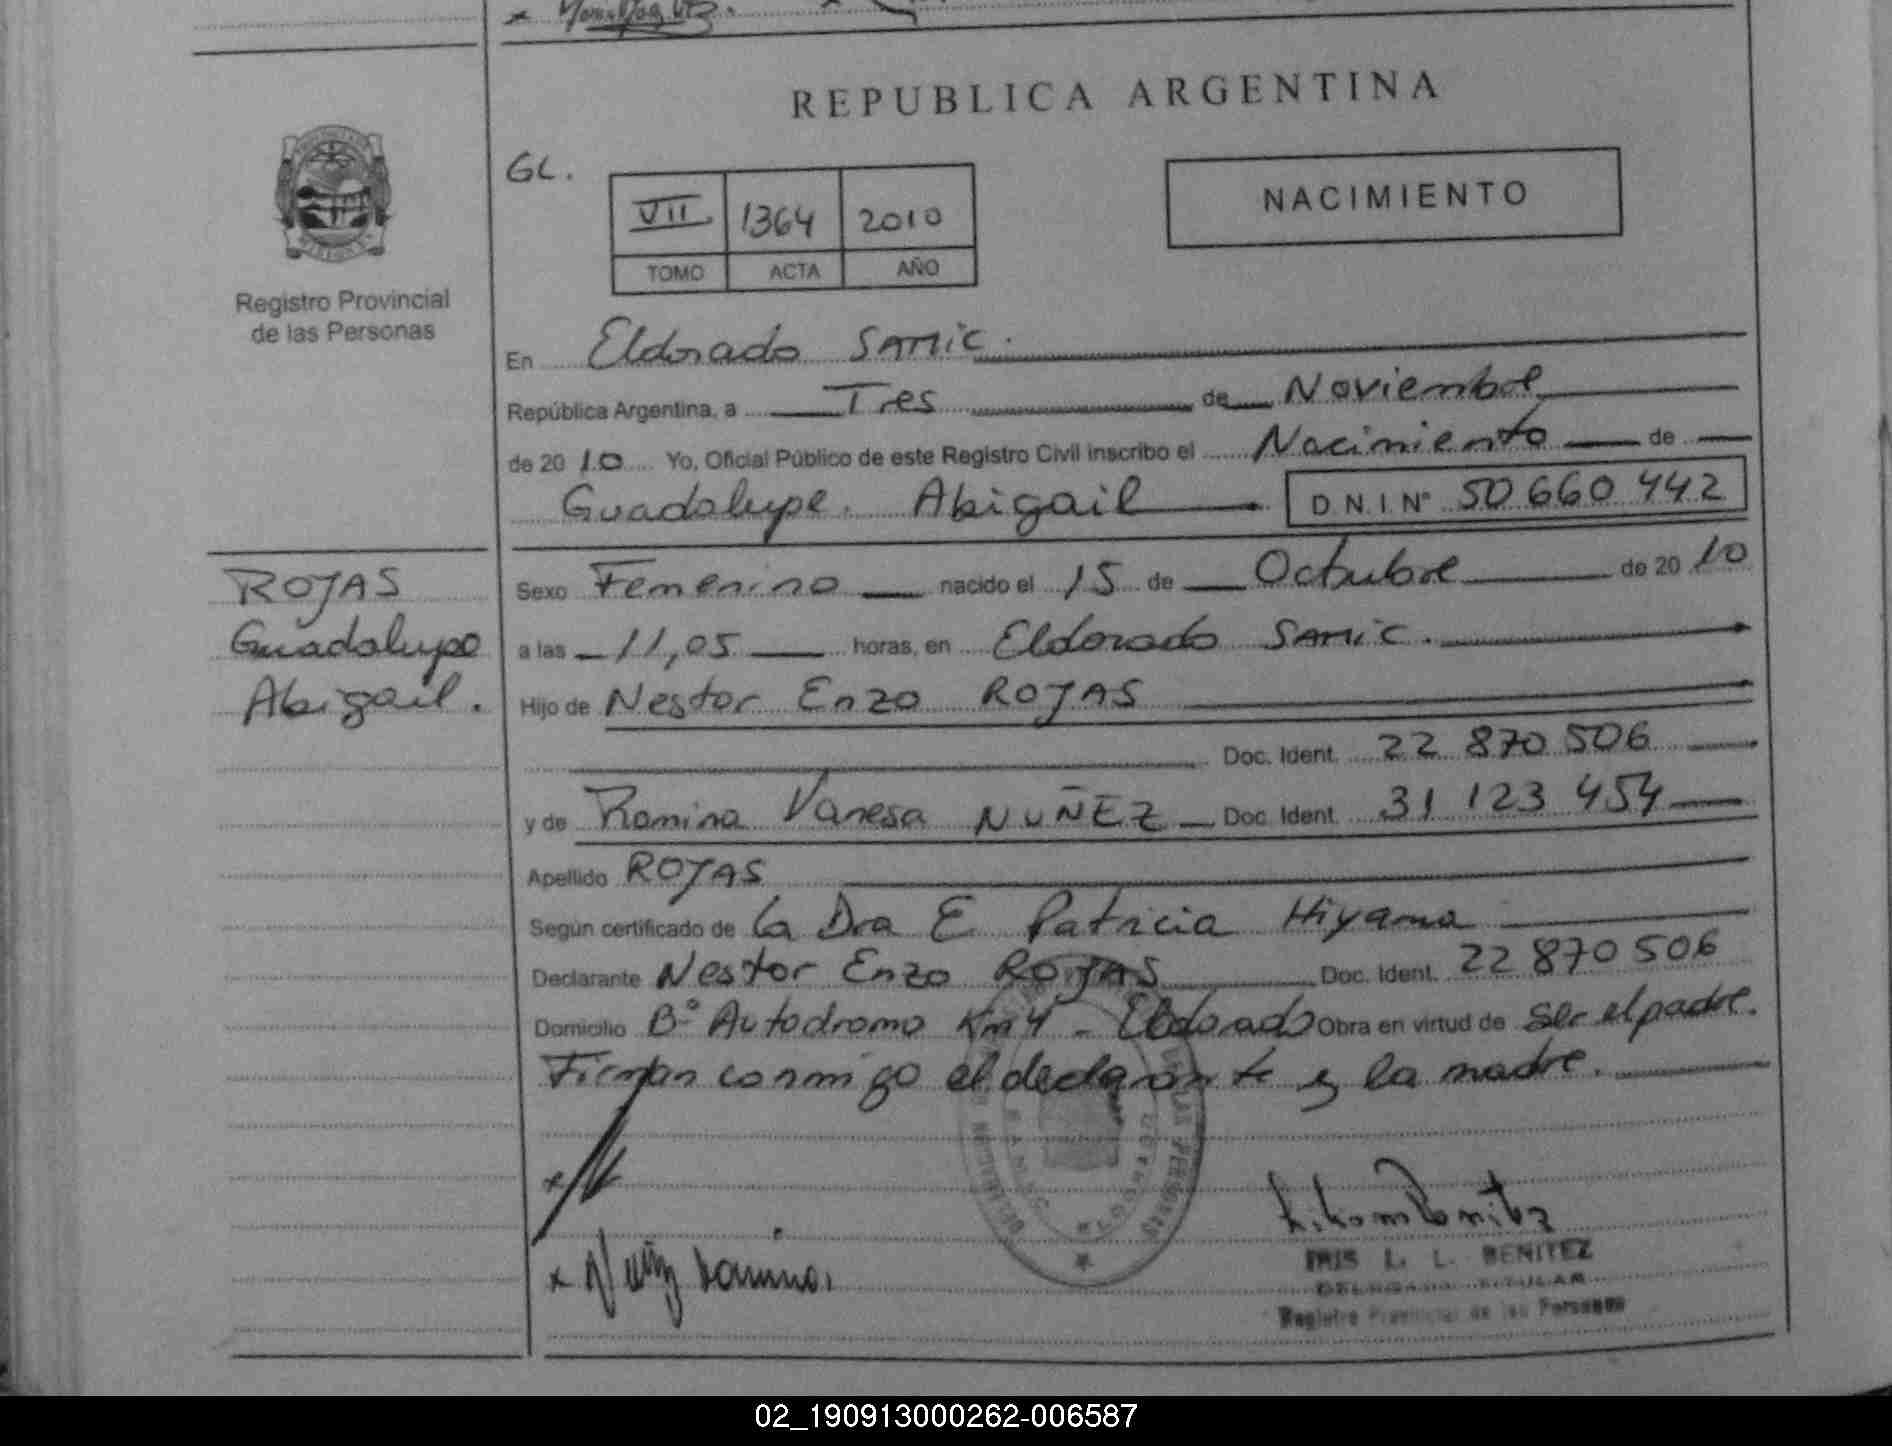 REPUBLICA ARGENTINA
GL.
VII 1364 2010
TOMO ACTA AÑO
NACIMIENTO
Registro Provincial
de las Personas
En Eldorado SAMIC.
República Argentina, a Tres de Noviembre
de 2010 Yo, Oficial Público de este Registro Civil inscribo el Nacimiento de
Guadalupe Abigail D.N.I. Nº 50 660 442
ROJAS
Guadalupe
Abigail.
Sexo Femenino nacido el 15 de Octubre de 2010
a las 11,05 horas, en Eldorado SAMIC.
Hijo de Nestor Enzo ROJAS
Doc. Ident. 22 870 506
y de Romina Vanesa NUÑEZ Doc. Ident. 31 123 454
Apellido ROJAS
Según certificado de la Dra E. Patricia Hiyama
Declarante Nestor Enzo ROJAS Doc. Ident. 22 870 506
Domicilio Bº Autodromo Km 4 - Eldorado Obra en virtud de ser el padre.
Firman conmigo el declarante y la madre.
IRIS L. L. BENITEZ
DELEGADA TITULAR
Registro Provincial de las Personas
02_190913000262-006587